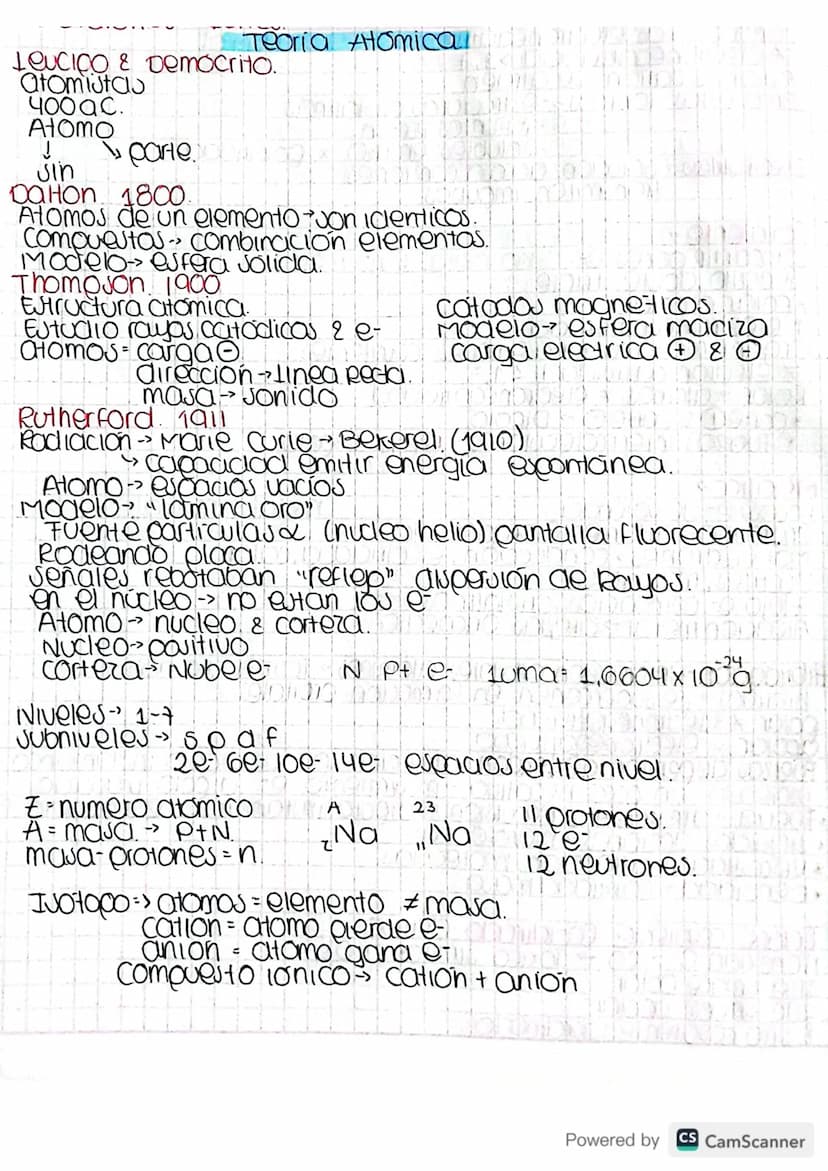 Teoría Atómica
Leucico & Demócrito.
atomistas
400 a C.
Átomo
↓ ↘ parte.
sin
Dalton 1800.
Átomos de un elemento → son identicos.
Compuestos → combinación elementos.
Modelo → esfera sólida.
Thompson. 1900
Estructura atómica.
Estudio rayos catódicos & e-
átomos = carga ⊖
dirección → linea recta.
masa → sonido
catodos magneticos.
Modelo → esfera maciza
carga electrica ⊕ & ⊖
Rutherford. 1911
Radiación → Marie Curie → Bekerel. (1910)
↳ capacidad emitir energía espontánea.
Átomo → espacios vacíos
Modelo → "lamina oro"
Fuente partículas α (nucleo helio) pantalla fluorecente.
Rodeando placa.
señales rebotaban "reflep" dispersión de Rayos.
en el núcleo → no estan los e-
Átomo → nucleo & corteza.
Nucleo → positivo
corteza → Nube e- N P+ e- 1uma = 1,6604 x 10⁻²⁴g.
Niveles → 1-7
subniveles → s p d f
2e- 6e- 10e- 14e- espacios entre nivel.
Z = numero atómico
A = masa. → P+N.
masa - protones = n.
A 23
Z Na 11 Na
11 protones.
12 e-
12 neutrones.
Isótopo => átomos = elemento ≠ masa.
catión = átomo pierde e-
anión = átomo gana e-
Compuesto iónico → catión + anión
Powered by CS CamScanner